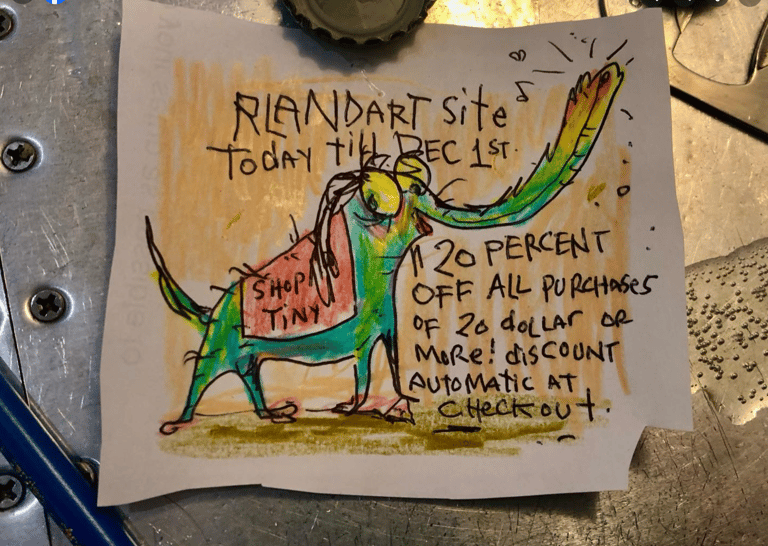 RLANDART site
Today till DEC 1ST.
SHOP
TiNY
20 PERCENT
OFF ALL PURCHASES
OF 20 dOLLAR OR
MORE! diSCOUNT
AUTOMATIC AT
CHECKOUT.